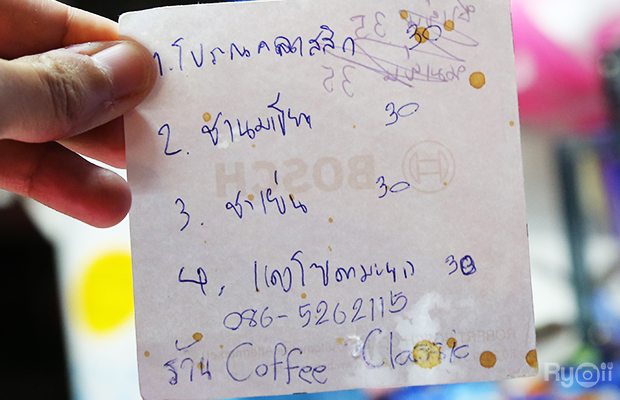 1. โบราณคลาสสิก 30
2. ชานมเย็น 30
3. ชาเย็น 30
4. แดงโซดามะนาว 30
086-5262115
ร้าน Coffee Classic
BOSCH
Ryoii